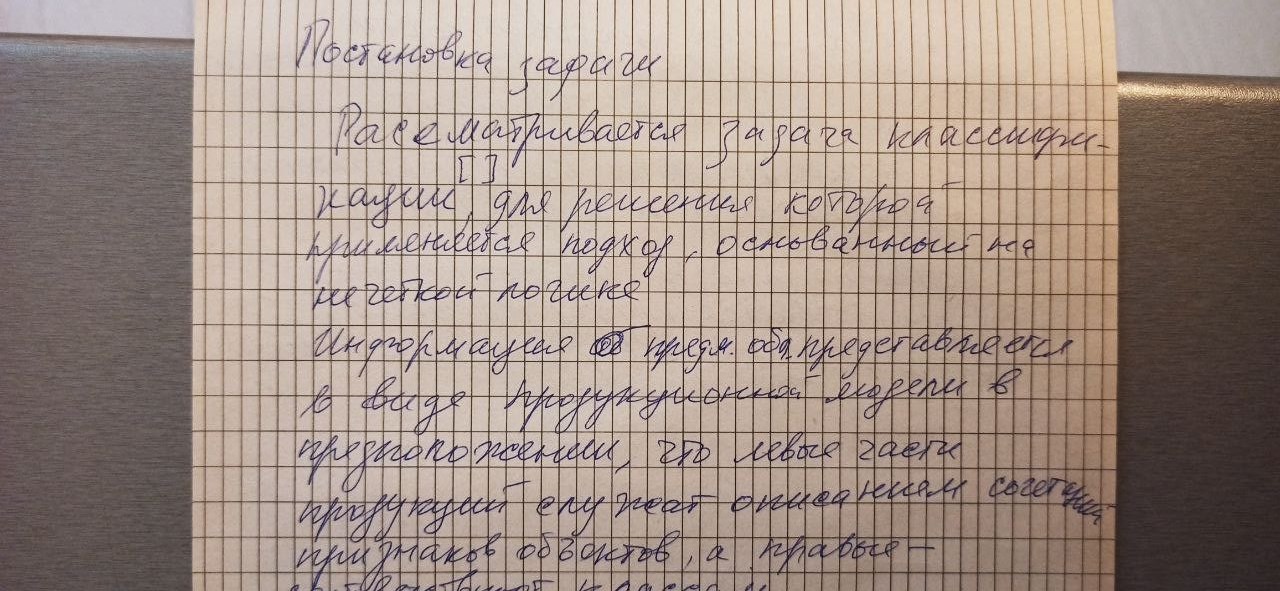 Постановка задачи
Рассматривается задача классифи-
[ ]
кации, для решения которой
применяется подход, основанный на
нечеткой логике
Информация об предм. обл. представляется
в виде продукционной модели в
предположении, что левые части
продукций служат описанием сочетаний
признаков объектов, а правые –
соответствуют классам